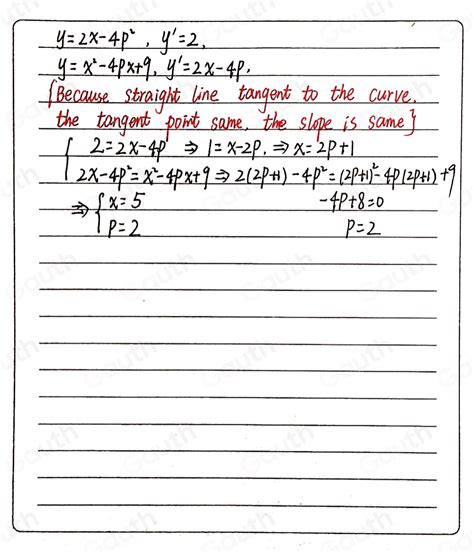 y=2x-4p², y'=2.
y=x²-4px+9, y'=2x-4p.
{Because straight line tangent to the curve.
the tangent point same, the slope is same}
{ 2=2x-4p ⇒ 1=x-2p. ⇒ x=2p+1
2x-4p²=x²-4px+9 ⇒ 2(2p+1)-4p²=(2p+1)²-4p(2p+1)+9
⇒ { x=5 -4p+8=0
p=2 p=2
Gauth